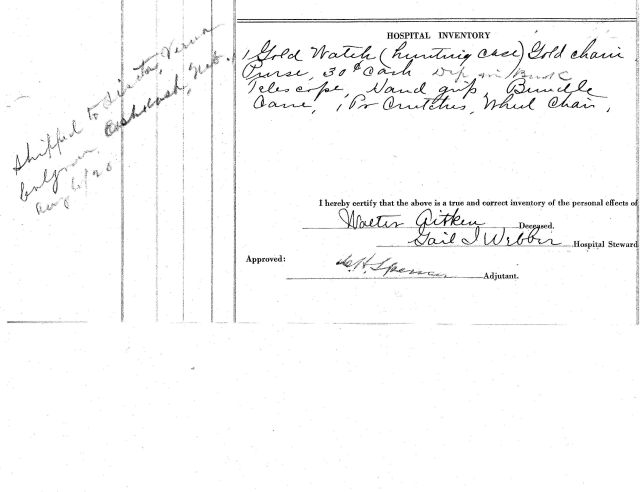 HOSPITAL INVENTORY
1 Gold Watch (hunting case) Gold chain
Purse, 30¢ Cash Dep. in Bank
Telescope, Hand grip, Bundle
Cane, 1 Pr Crutches, Wheel Chair,
I hereby certify that the above is a true and correct inventory of the personal effects of
Walter Aitken Deceased.
Gail I Webber Hospital Steward
Approved:
Spencer Adjutant.
Shipped to Sister, Verna
Neb.
Aug 6/20